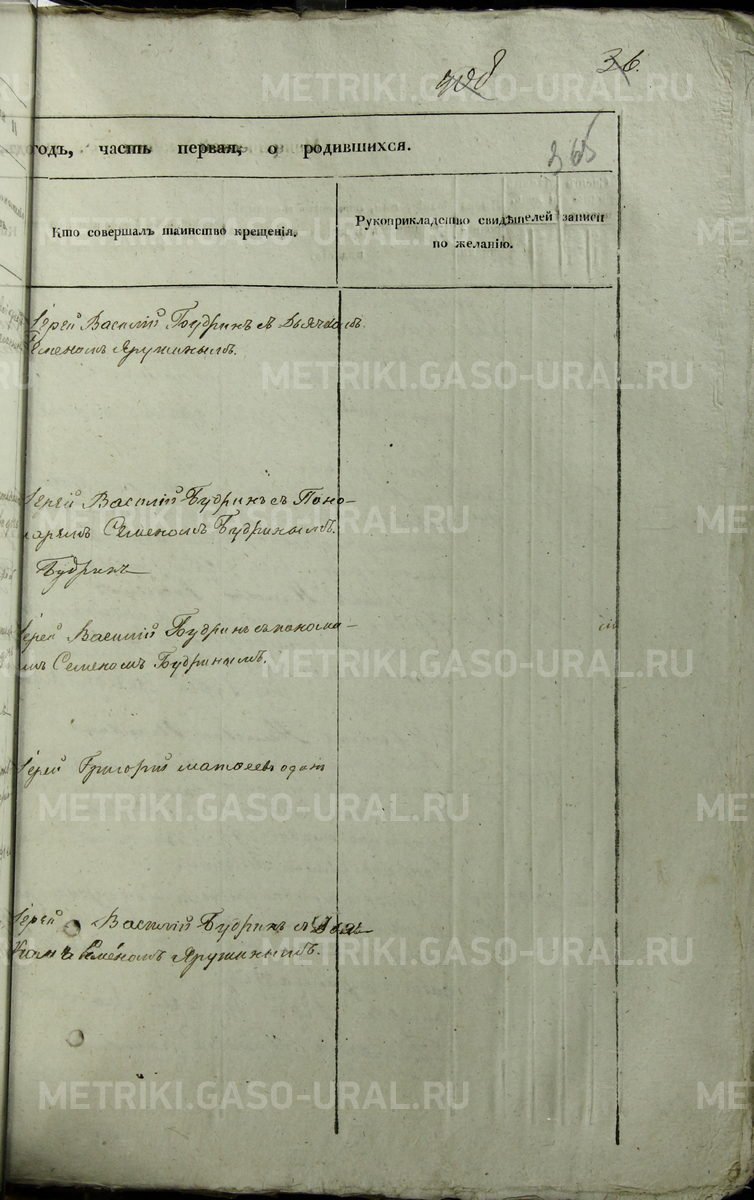 36.
365
годъ, часть первая, о родившихся.
Кто совершалъ таинство крещенія.
Рукоприкладство свидѣтелей записи
по желанію.
Іерей Василій Будринъ с Дьячкомъ
Семеномъ Яружинымъ.
Іерей Василій Будринъ с Поно-
маремъ Семеномъ Будринымъ.
Будринъ
Іерей Василій Будринъ с понома-
мъ Семеномъ Будринымъ.
Іерей Григорий матвеевъ одинъ
Іерей Василій Будринъ с Дья-
Семеномъ Яружинымъ.
METRIKI.GASO-URAL.RU